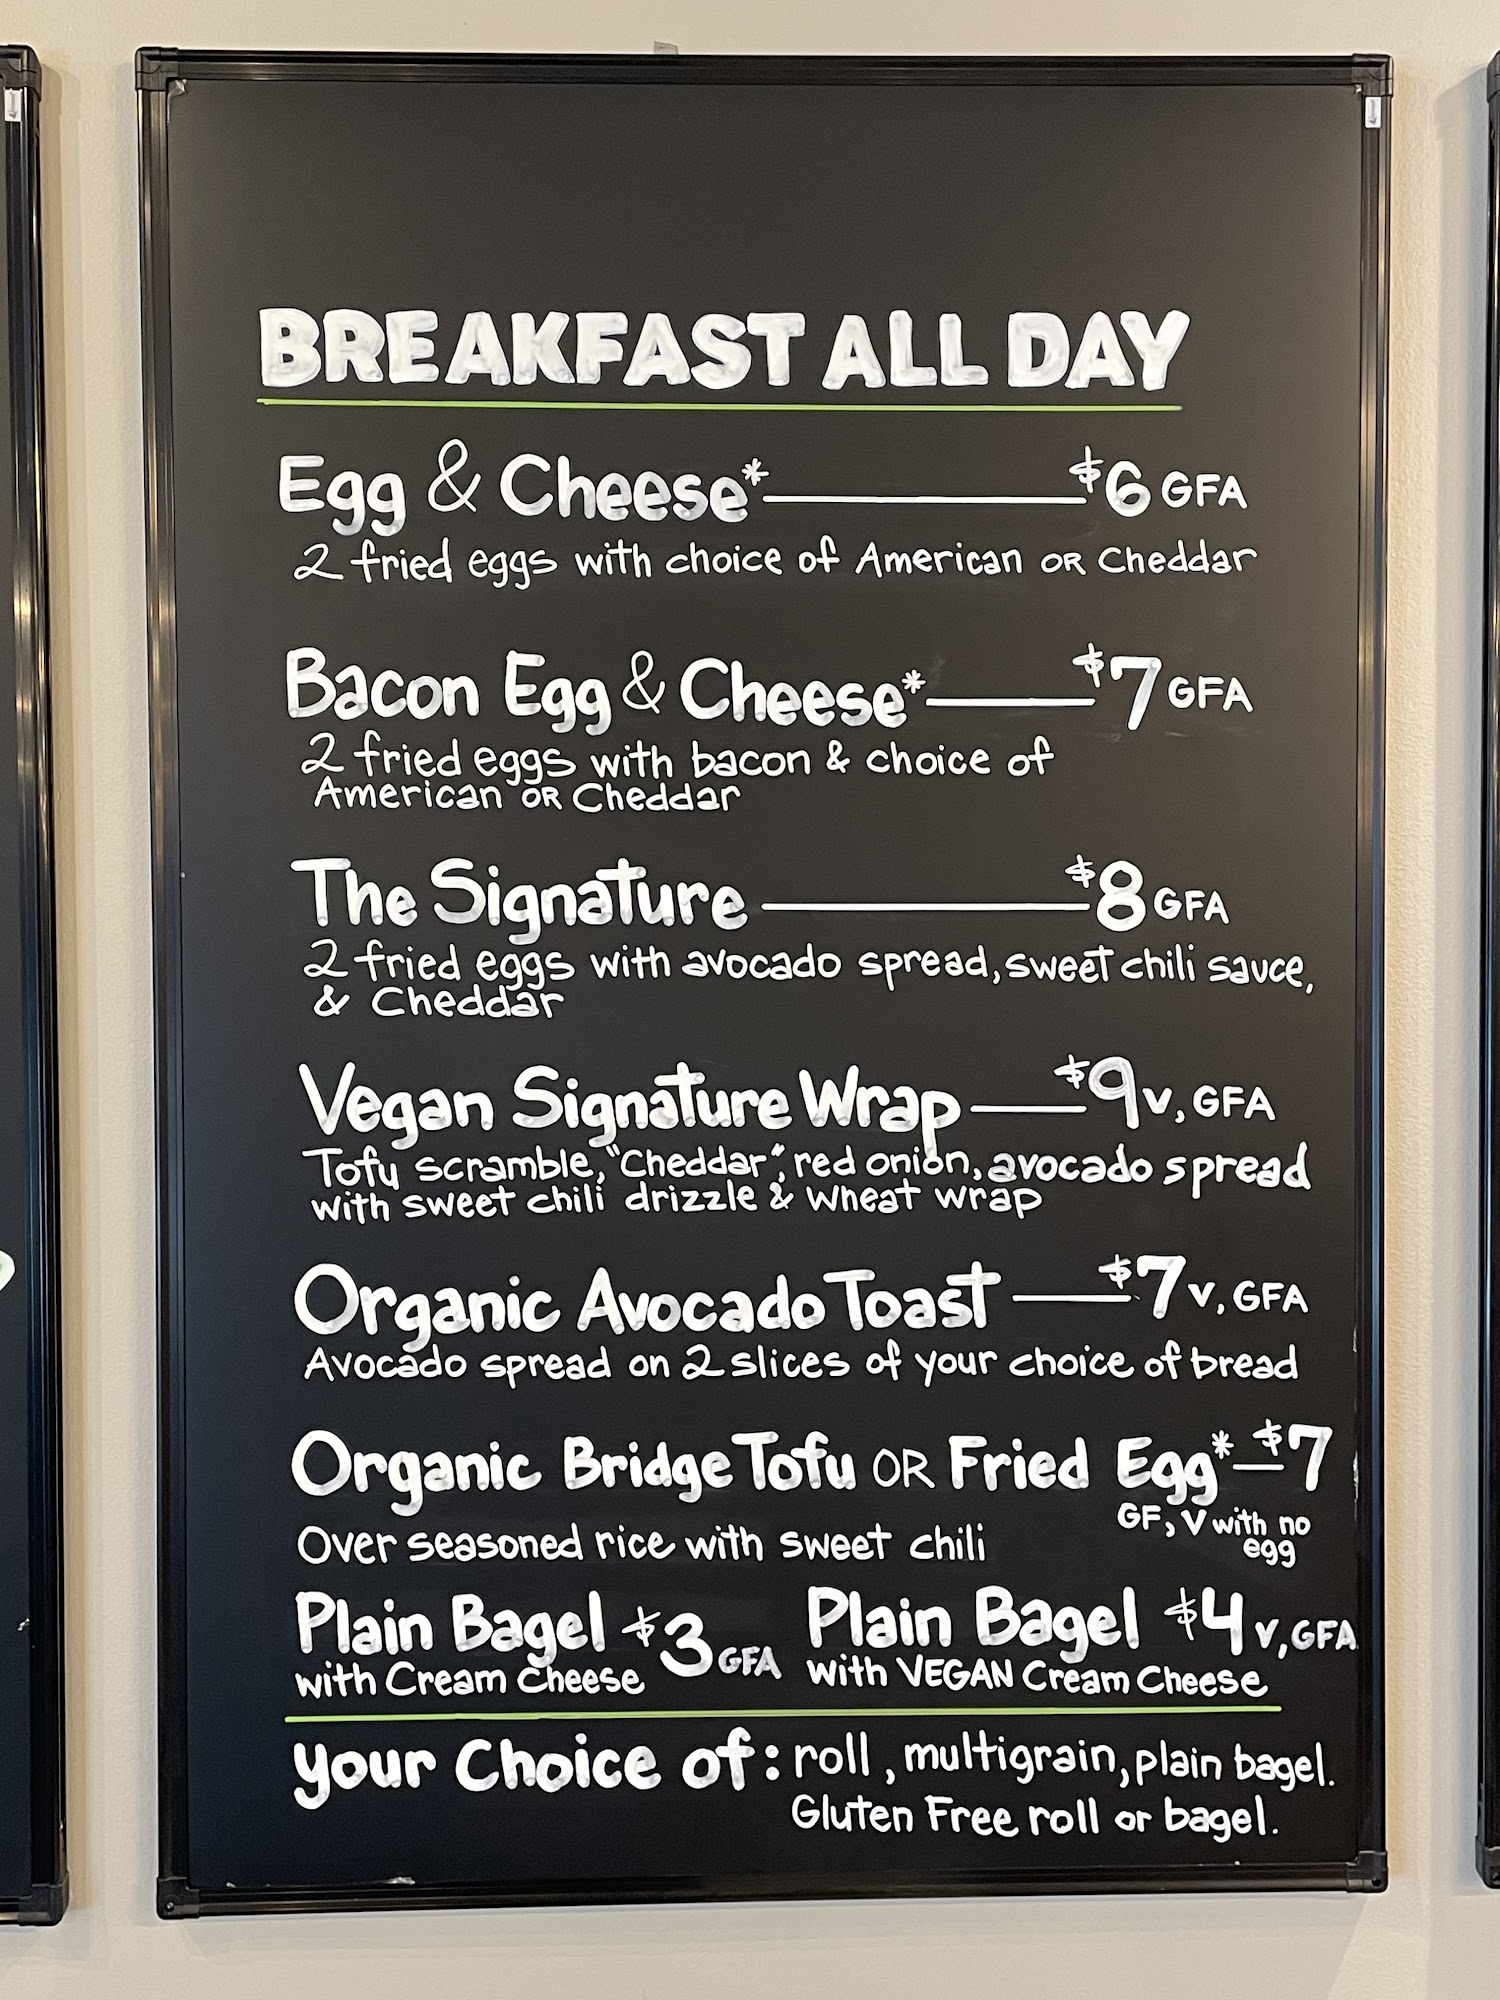 BREAKFAST ALL DAY
Egg & Cheese* $6 GFA
2 fried eggs with choice of American OR Cheddar
Bacon Egg & Cheese* $7 GFA
2 fried eggs with bacon & choice of
American OR Cheddar
The Signature $8 GFA
2 fried eggs with avocado spread, sweet chili sauce,
& Cheddar
Vegan Signature Wrap $9 V, GFA
Tofu scramble, "Cheddar", red onion, avocado spread
with sweet chili drizzle & wheat wrap
Organic Avocado Toast $7 V, GFA
Avocado spread on 2 slices of your choice of bread
Organic Bridge Tofu OR Fried Egg* $7
GF, V with no
egg
Over seasoned rice with sweet chili
Plain Bagel $3 GFA
with Cream Cheese
Plain Bagel $4 V, GFA
with VEGAN Cream Cheese
your Choice of: roll, multigrain, plain bagel.
Gluten Free roll or bagel.